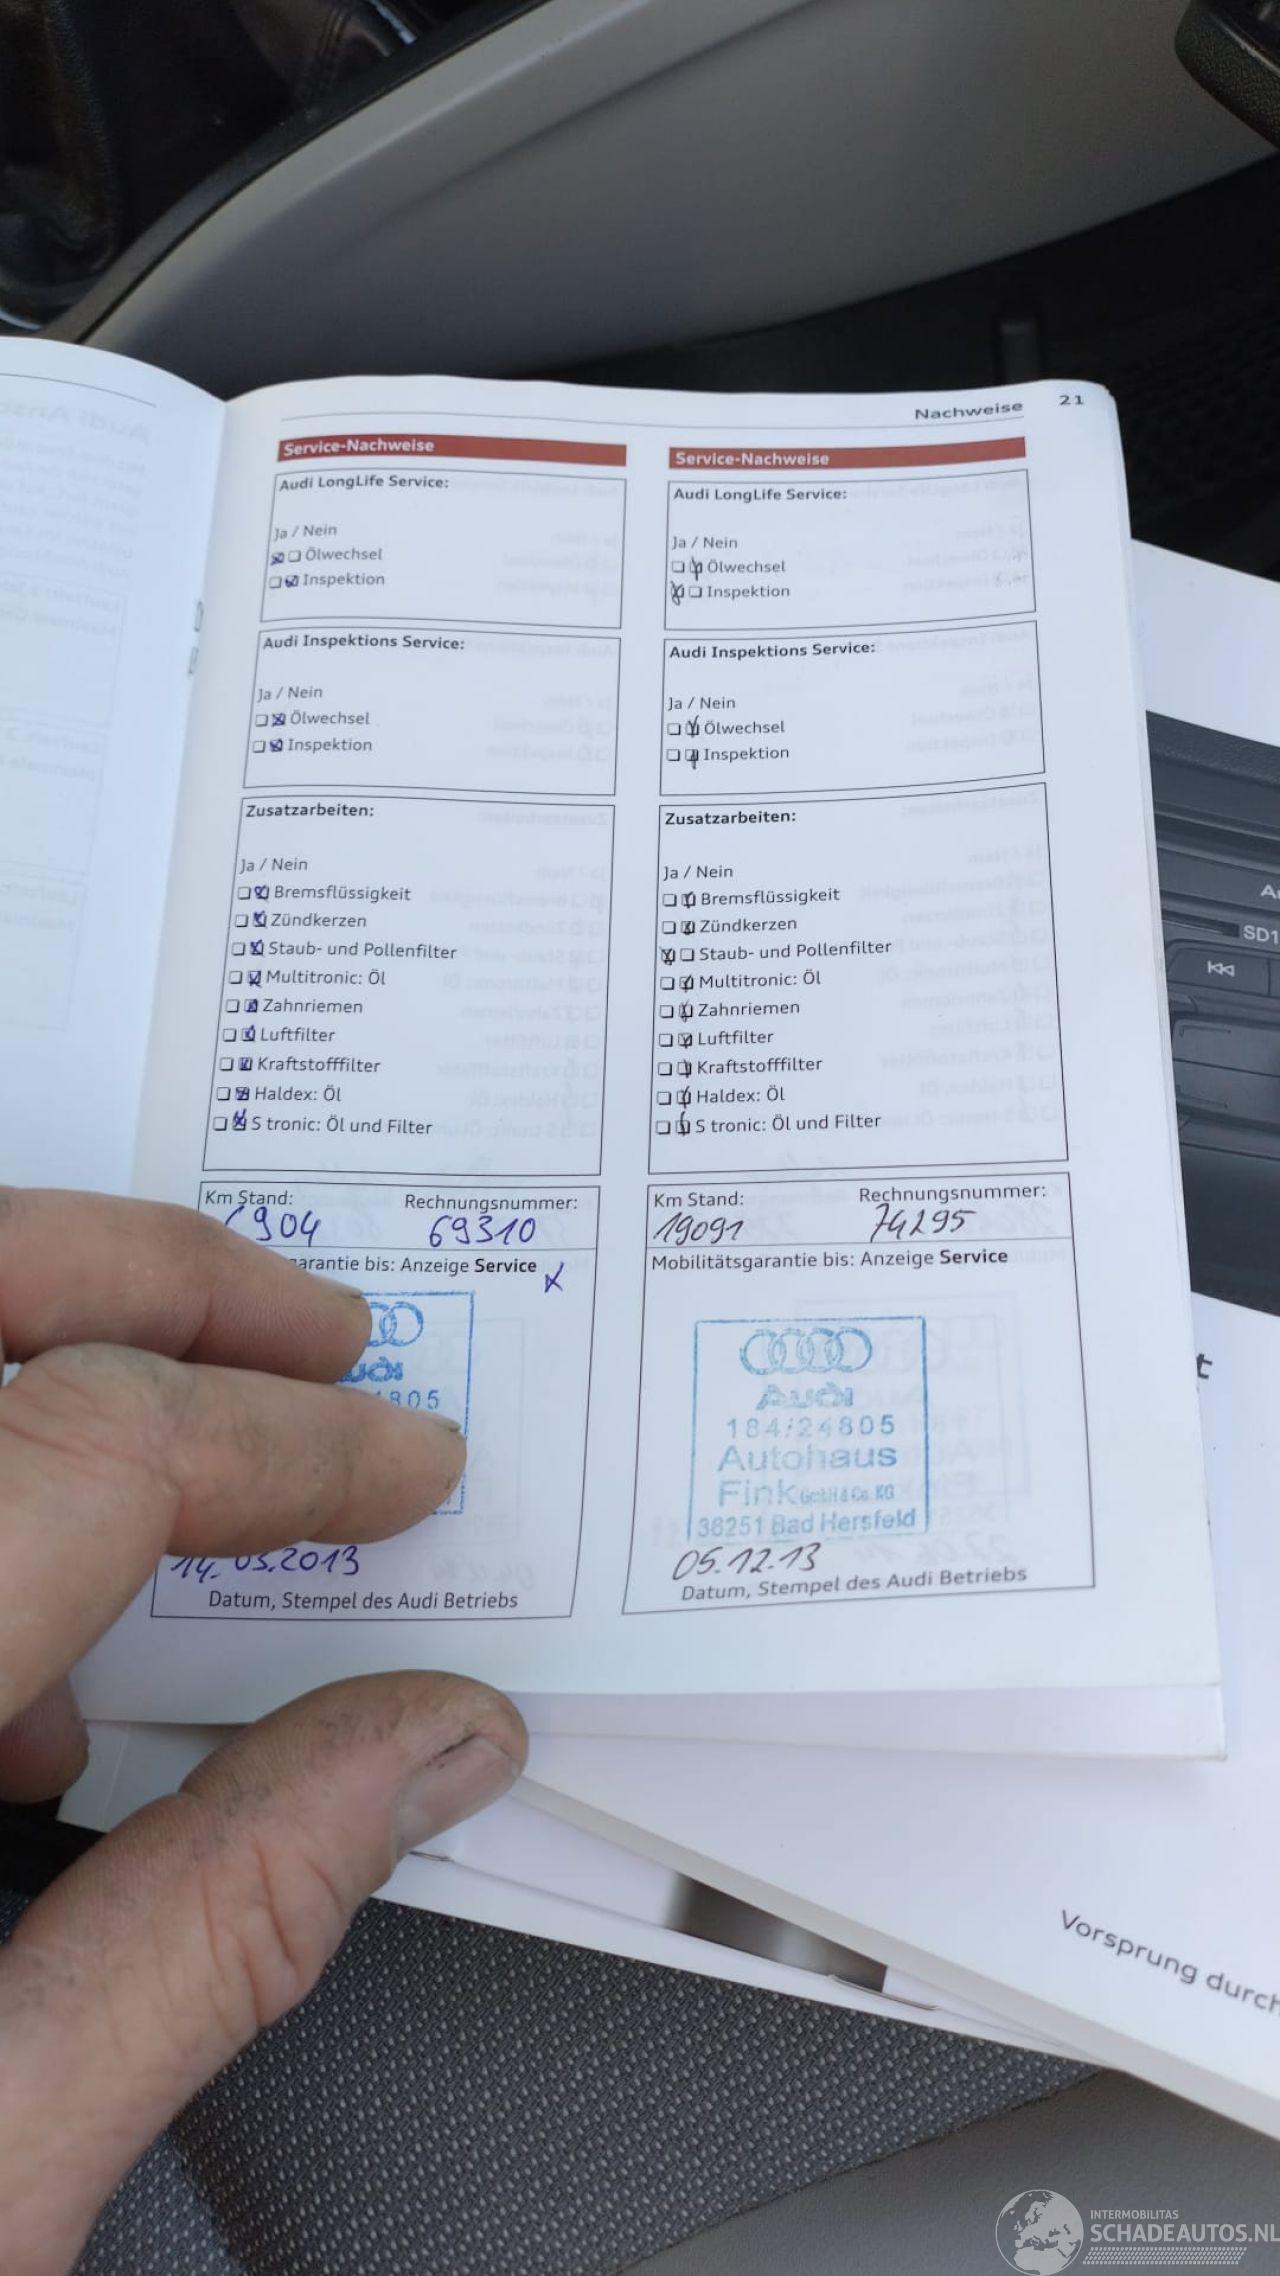 Nachweise 21
Service-Nachweise
Audi LongLife Service:
Ja / Nein
Ölwechsel
Inspektion
Audi Inspektions Service:
Ja / Nein
Ölwechsel
Inspektion
Zusatzarbeiten:
Ja / Nein
Bremsflüssigkeit
Zündkerzen
Staub- und Pollenfilter
Multitronic: Öl
Zahnriemen
Luftfilter
Kraftstofffilter
Haldex: Öl
S tronic: Öl und Filter
Km Stand: Rechnungsnummer:
904 69310
arantie bis: Anzeige Service
Audi
4805
14.03.2013
Datum, Stempel des Audi Betriebs
Service-Nachweise
Audi LongLife Service:
Ja / Nein
Ölwechsel
Inspektion
Audi Inspektions Service:
Ja / Nein
Ölwechsel
Inspektion
Zusatzarbeiten:
Ja / Nein
Bremsflüssigkeit
Zündkerzen
Staub- und Pollenfilter
Multitronic: Öl
Zahnriemen
Luftfilter
Kraftstofffilter
Haldex: Öl
S tronic: Öl und Filter
Km Stand: Rechnungsnummer:
19091 74295
Mobilitätsgarantie bis: Anzeige Service
Audi
184/24805
Autohaus
Fink GmbH & Co. KG
36251 Bad Hersfeld
05.12.13
Datum, Stempel des Audi Betriebs
SD1
t
Vorsprung durch
INTERMOBILITAS
SCHADEAUTOS.NL